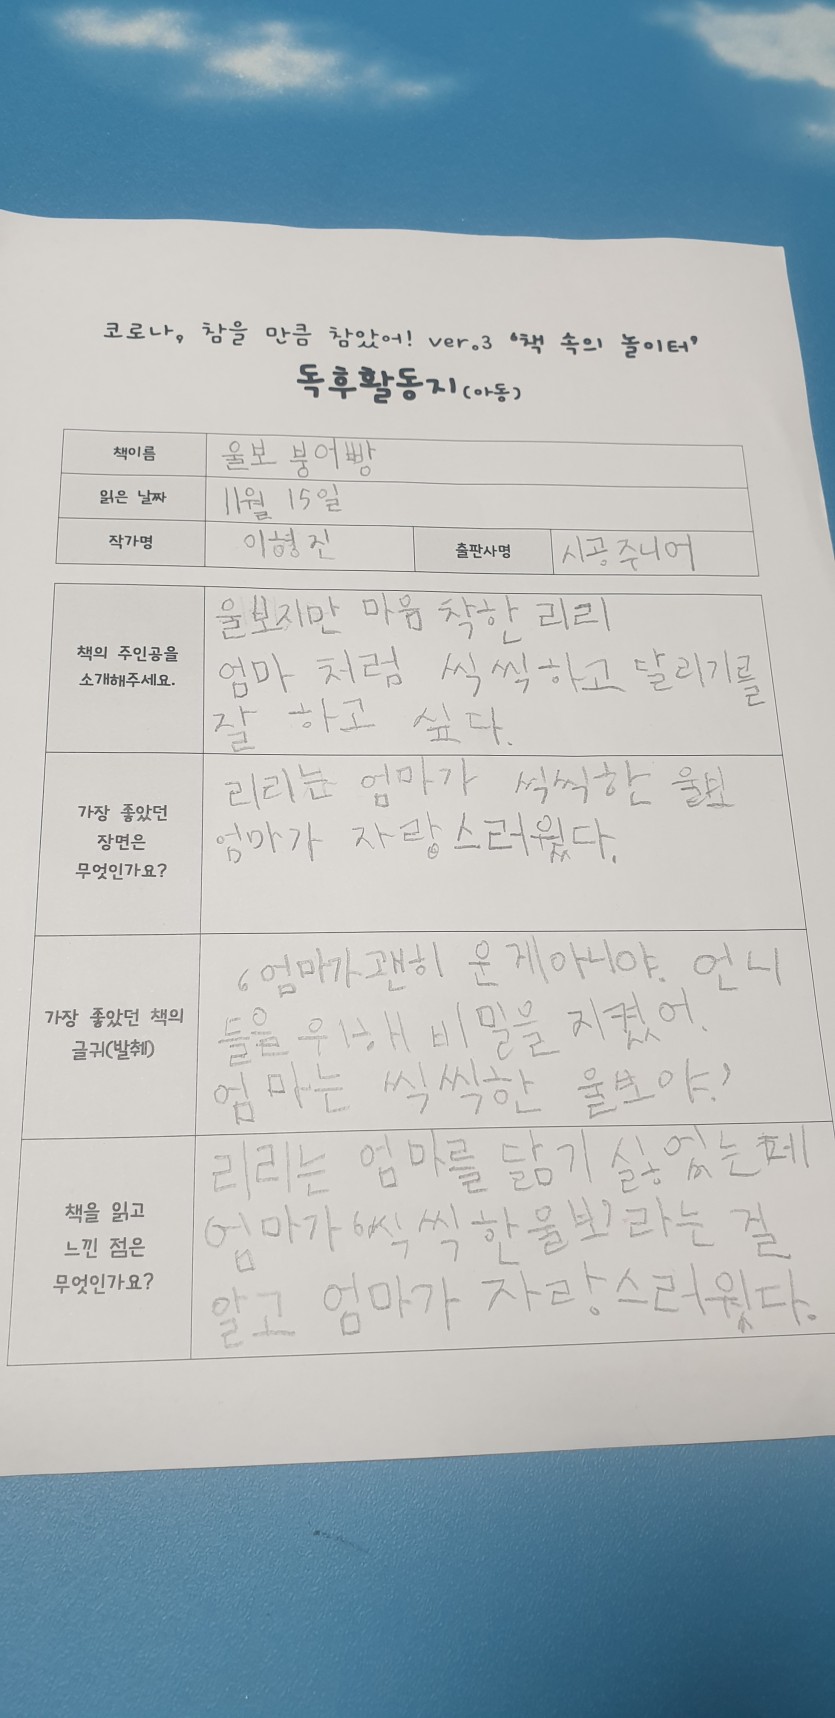 코로나, 참을 만큼 참았어! ver.3 '책 속의 놀이터'
독후활동지(아동)
책이름 울보 붕어빵
읽은 날짜 11월 15일
작가명 이형진 출판사명 시공주니어
책의 주인공을
소개해주세요.
울보지만 마음 착한 리리
엄마 처럼 씩씩하고 달리기를
잘 하고 싶다.
가장 좋았던
장면은
무엇인가요?
리리는 엄마가 씩씩한 울보
엄마가 자랑스러웠다.
가장 좋았던 책의
글귀(발췌)
'엄마가 괜히 운 게아니야. 언니
들을 위해 비밀을 지켰어.
엄마는 씩씩한 울보야.'
책을 읽고
느낀 점은
무엇인가요?
리리는 엄마를 닮기 싫었는데
엄마가 '씩씩한울보'라는 걸
알고 엄마가 자랑스러웠다.